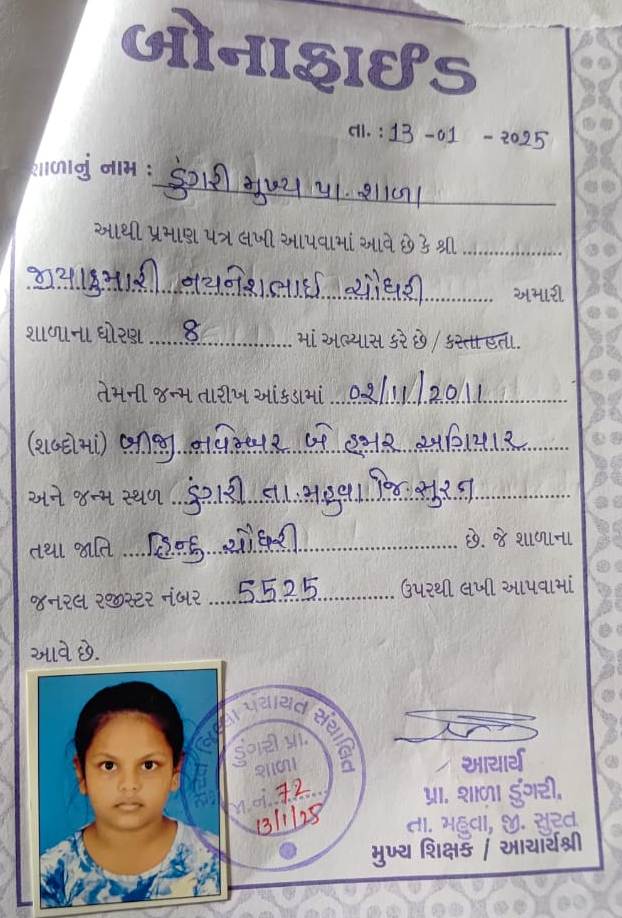 બોનાફાઈડ
તા. : 13 -01 - 2025
શાળાનું નામ : ડુંગરી મુખ્ય પ્રા. શાળા
આથી પ્રમાણ પત્ર લખી આપવામાં આવે છે કે શ્રી
જીયાકુમારી નયનેશભાઈ ચૌધરી અમારી
શાળાના ધોરણ 8 માં અભ્યાસ કરે છે / કરતા હતા.
તેમની જન્મ તારીખ આંકડામાં 02/11/2011
(શબ્દોમાં) બીજી નવેમ્બર બે હજાર અગિયાર
અને જન્મ સ્થળ ડુંગરી તા. મહુવા જિ. સુરત
તથા જાતિ હિન્દુ ચૌધરી છે. જે શાળાના
જનરલ રજીસ્ટર નંબર 5525 ઉપરથી લખી આપવામાં
આવે છે.
જિલ્લા પંચાયત સંચાલિત
ડુંગરી પ્રા.
શાળા
જા.નં. 72
13/1/25
આચાર્ય
પ્રા. શાળા ડુંગરી.
તા. મહુવા, જી. સુરત
મુખ્ય શિક્ષક / આચાર્યશ્રી